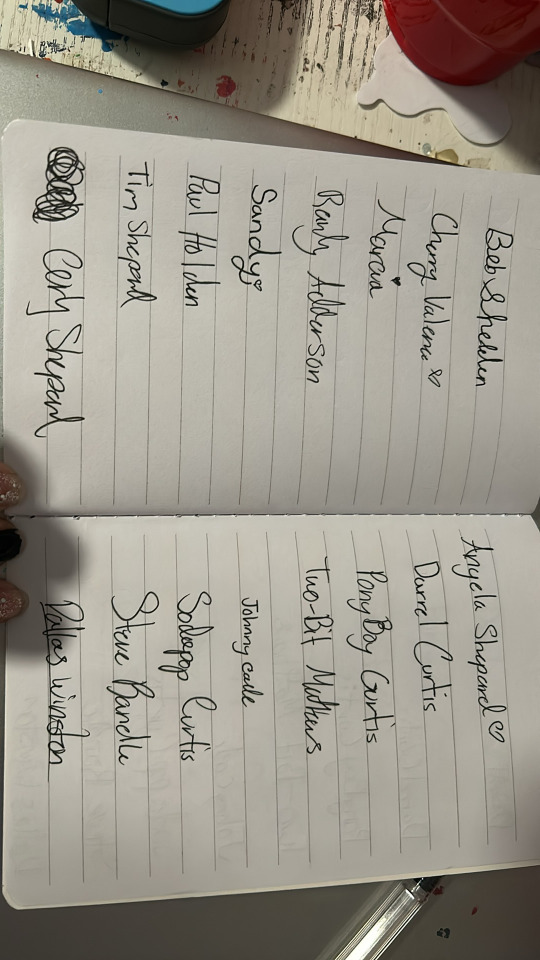 Bob Shelden
Cherry Valence ♡
Marcia ♥
Randy Adderson
Sandy ♡
Paul Holden
Tim Shepard
Curly Shepard
Angela Shepard ♡
Darrel Curtis
PonyBoy Curtis
Two-Bit Mathews
Johnny cade
Sodapop Curtis
Steve Randle
Dallas Winston